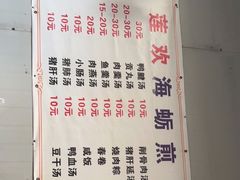 莲欢海蛎煎
鸭腱汤 30元
贡丸汤 20-30元
肉羹汤 20-30元
鱼羹汤 20元
15-20元
小肠汤 10元
猪肺汤 10元
猪肝汤 10元
削骨肉汤
猪肝延汤
烧肉粽
春卷 10元
咸饭 10元
鸭血汤 10元
豆干汤 10元